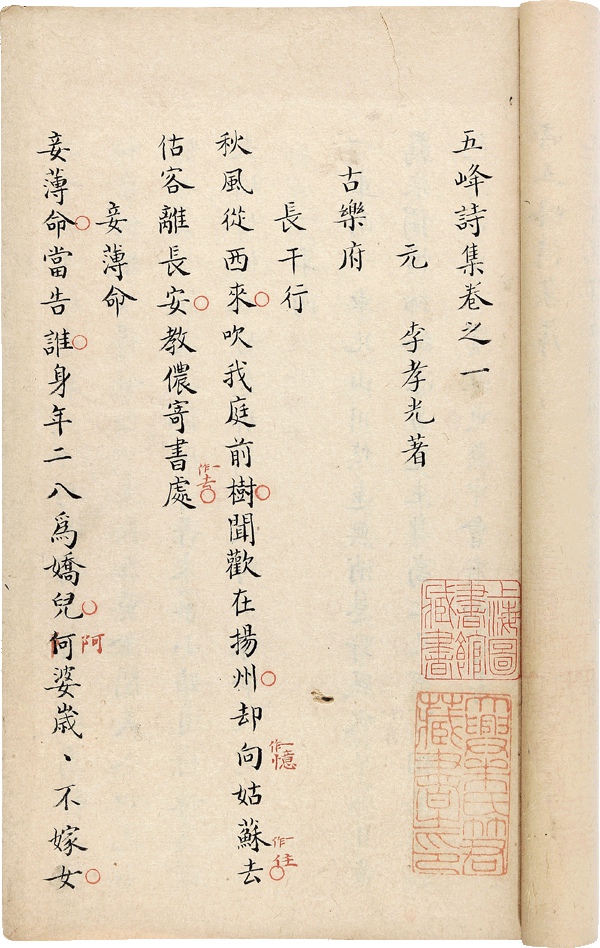 五峰詩集卷之一
元 李孝光著
古樂府
長干行
秋風從西來吹我庭前樹聞歡在揚州却向姑蘇去
一作憶
一作
估客離長安教儂寄書處
一作去
妾薄命
妾薄命當告誰身年二八爲嬌兒何婆歲、不嫁女
阿
上海圖書館藏書